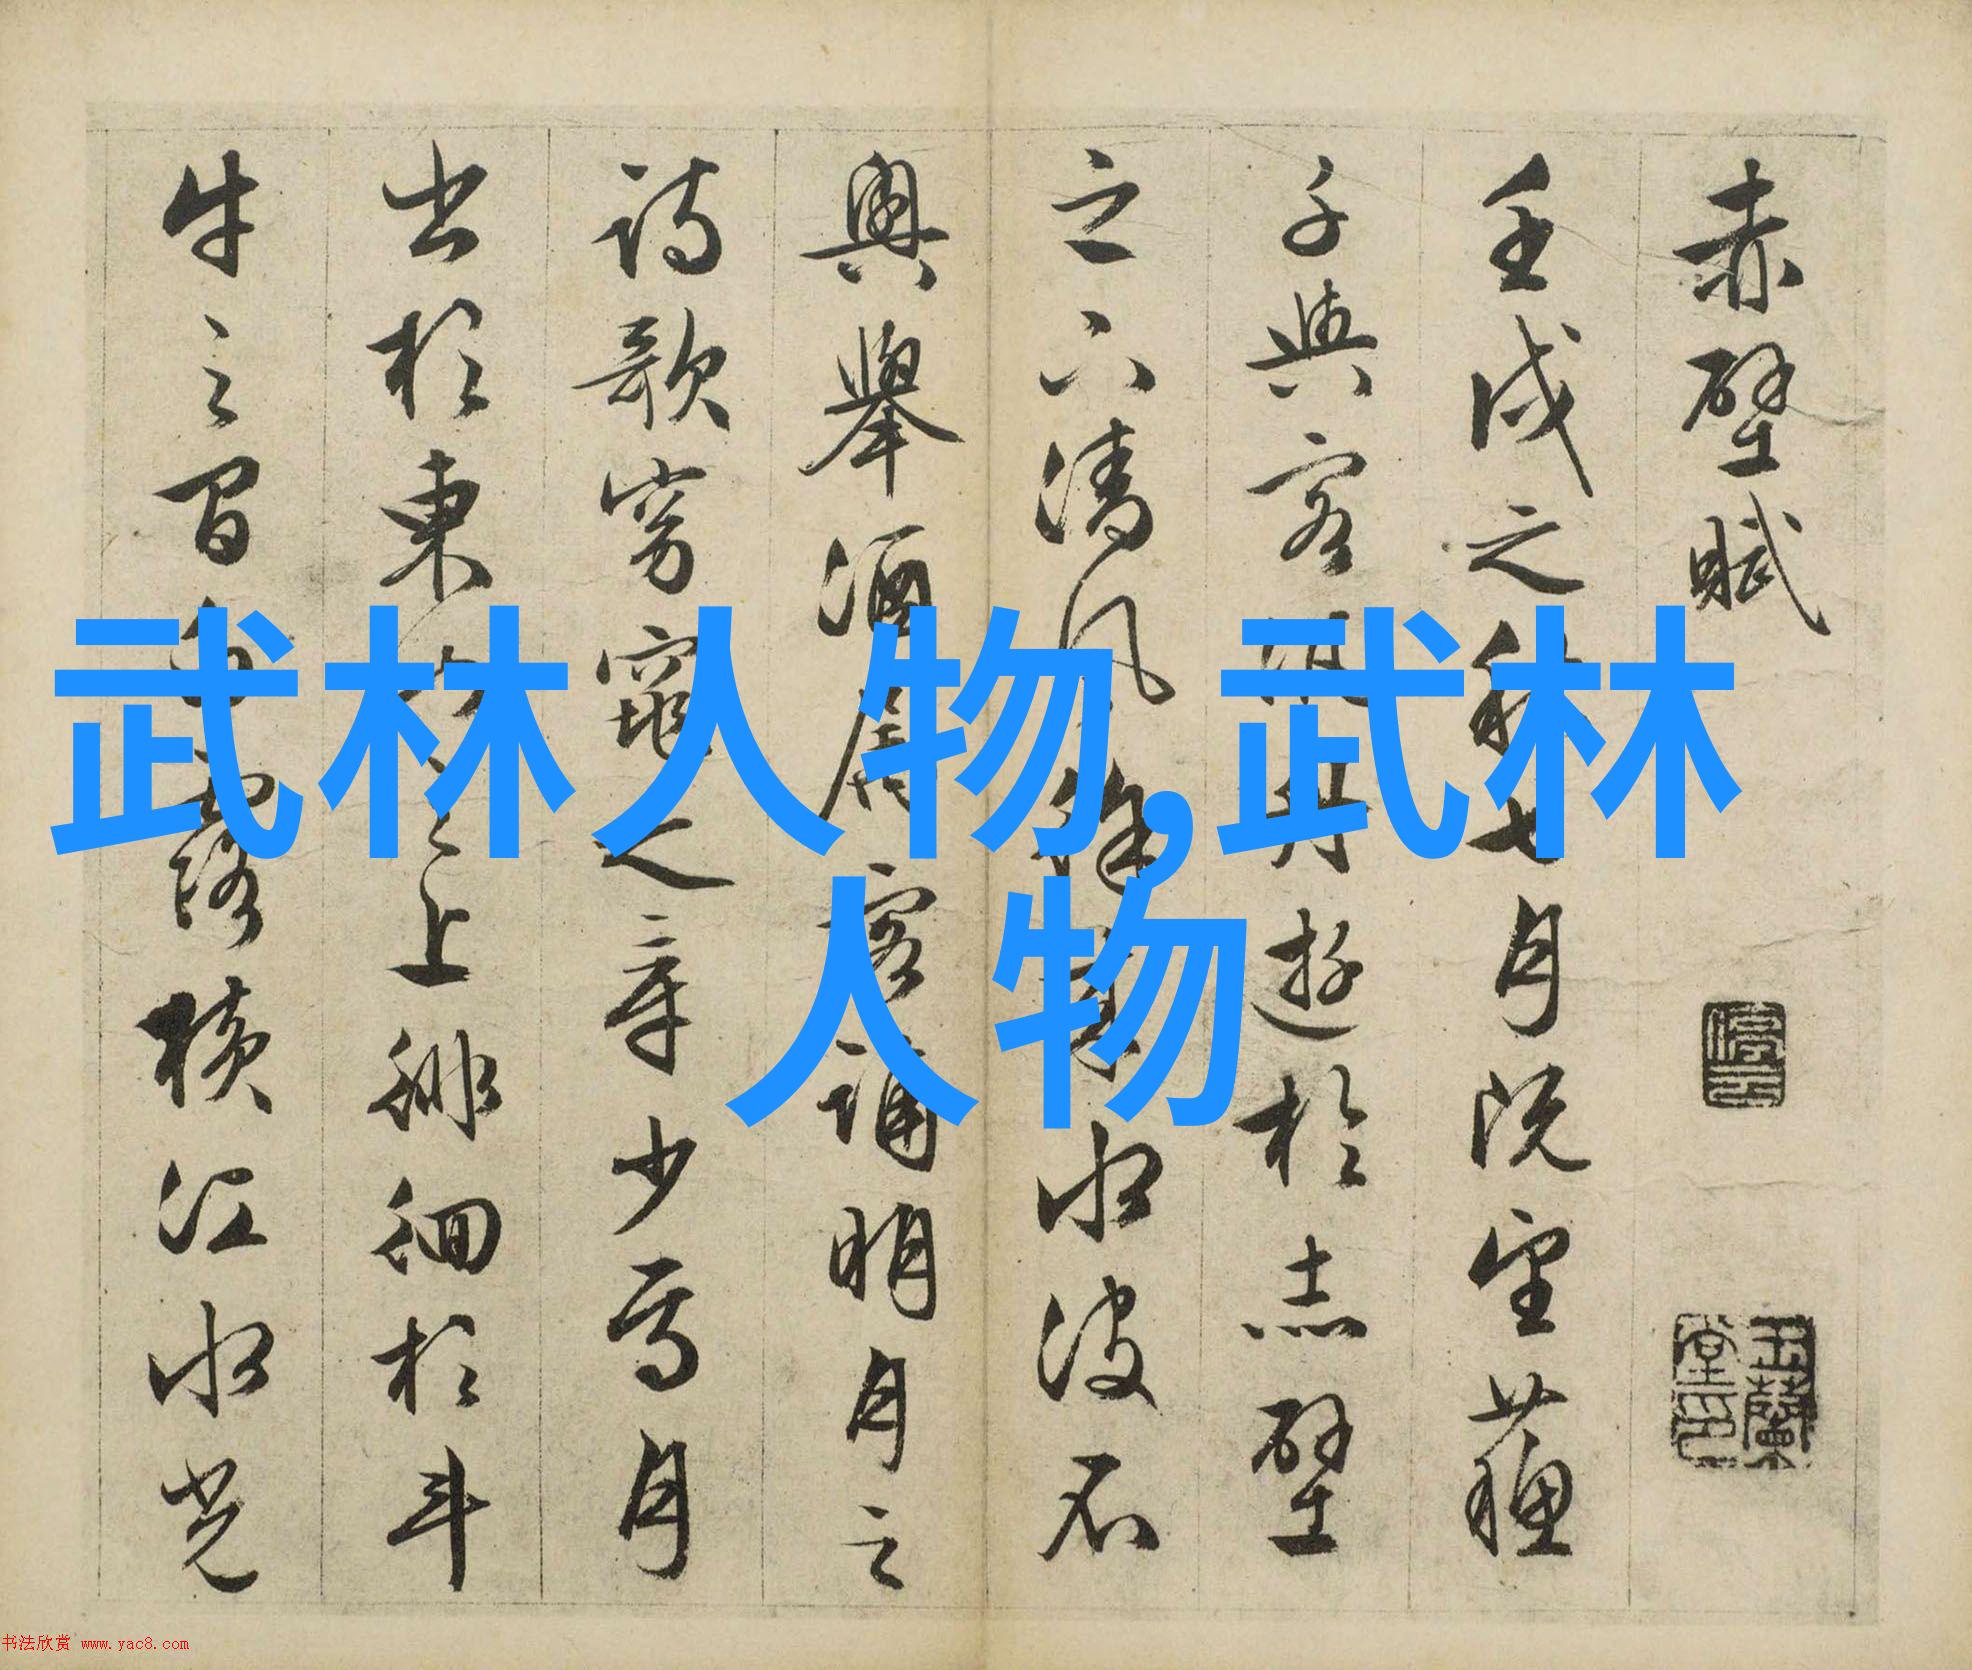 赤壁賦
壬戌之秋七月既望蘓
子與客泛舟遊於赤壁
之下清風徐來水波不
興舉酒屬客誦明月之
詩歌窈窕之章少焉月
出於東山之上徘徊於斗
牛之間白露橫江水光
停雲
玉蘭堂印
武林人物,武林
人物
书法欣赏 www.yac8.com